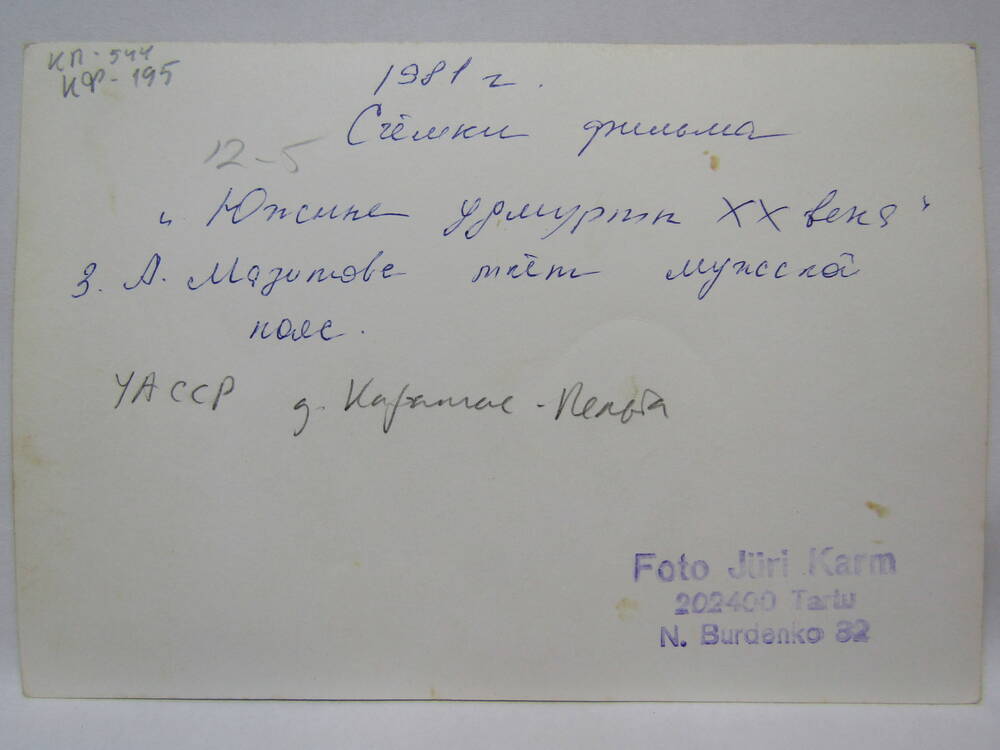 КП-544
КФ-195
1981 г.
Съёмки фильма
12-5
"Южные удмурты XX века"
З. А. Мазитова ткёт мужской
пояс.
УАССР д. Каратас-Пельга
Foto Jüri Karm
202400 Tartu
N. Burdenko 82